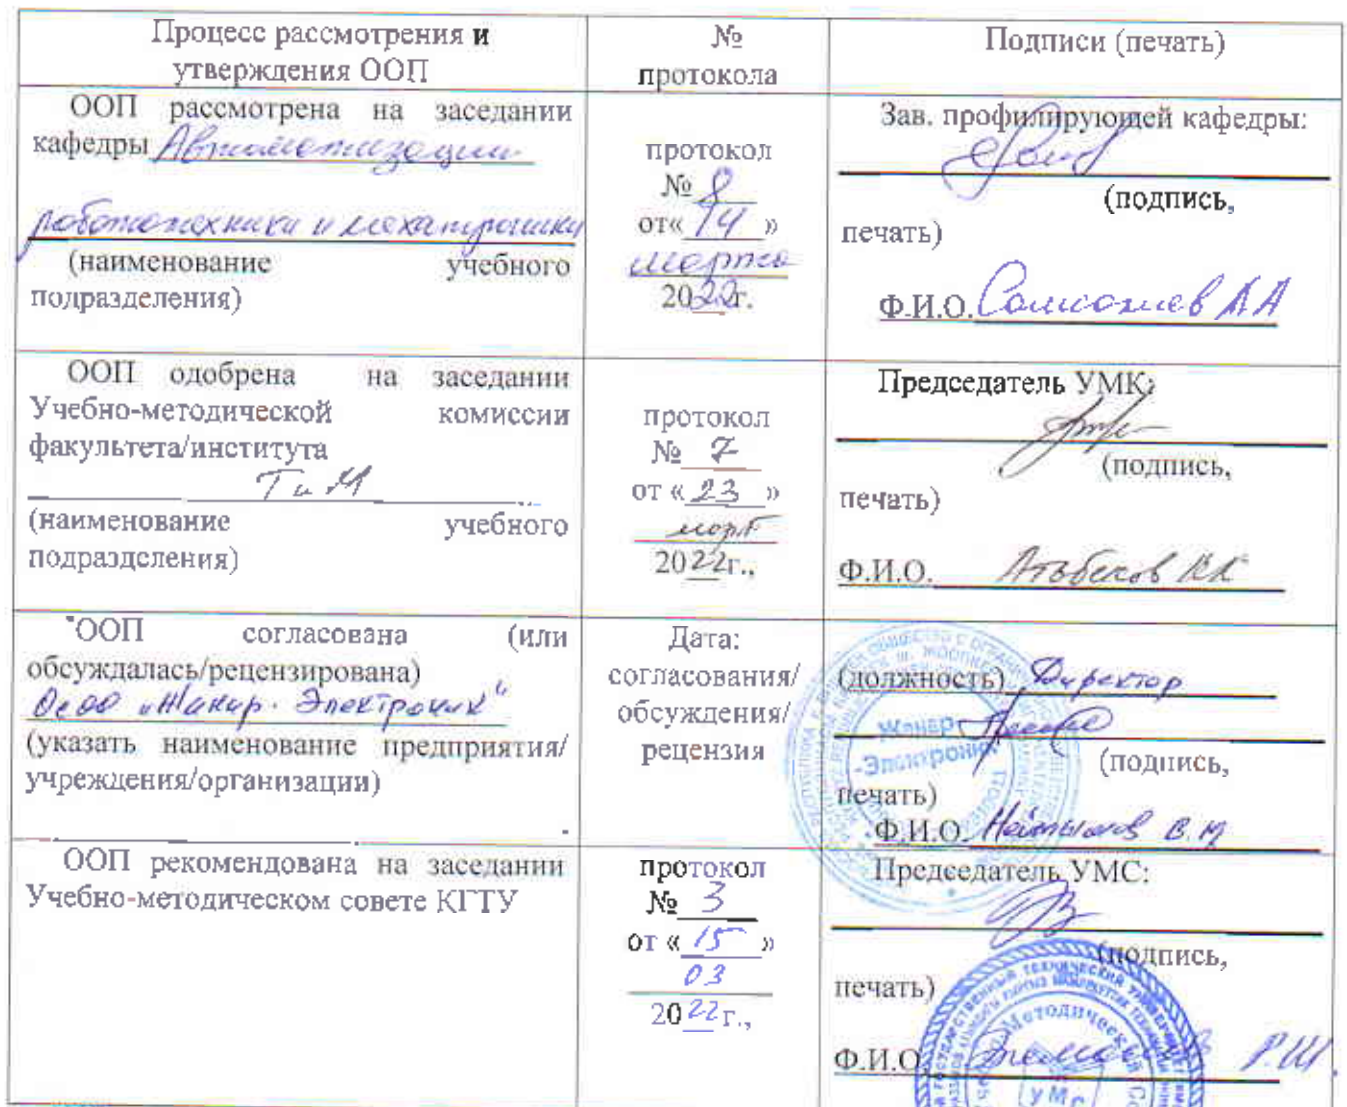 Процесс рассмотрения и
утверждения ООП
№
протокола
Подписи (печать)
ООП рассмотрена на заседании
кафедры Автоматизации
робототехники и мехатроники
(наименование учебного
подразделения)
протокол
№ 8
от« 14 »
марта
2022г.
Зав. профилирующей кафедры:
(подпись,
печать)
Ф.И.О.
ООП одобрена на заседании
Учебно-методической комиссии
факультета/института
ТиМ
(наименование учебного
подразделения)
протокол
№ 7
от « 23 »
март
2022г.,
Председатель УМК:
(подпись,
печать)
Ф.И.О. Атабеков К.К
ООП согласована (или
обсуждалась/рецензирована)
ОсОО "Жанар-Электроник"
(указать наименование предприятия/
учреждения/организации)
Дата:
согласования/
обсуждения/
рецензия
(должность) Директор
Жанар
-Электроник
(подпись,
печать)
Ф.И.О. В.И
ООП рекомендована на заседании
Учебно-методическом совете КГТУ
протокол
№ 3
от « 15 »
03
2022г.,
Председатель УМС:
(подпись,
печать)
Ф.И.О. Р.Ш.
УМС